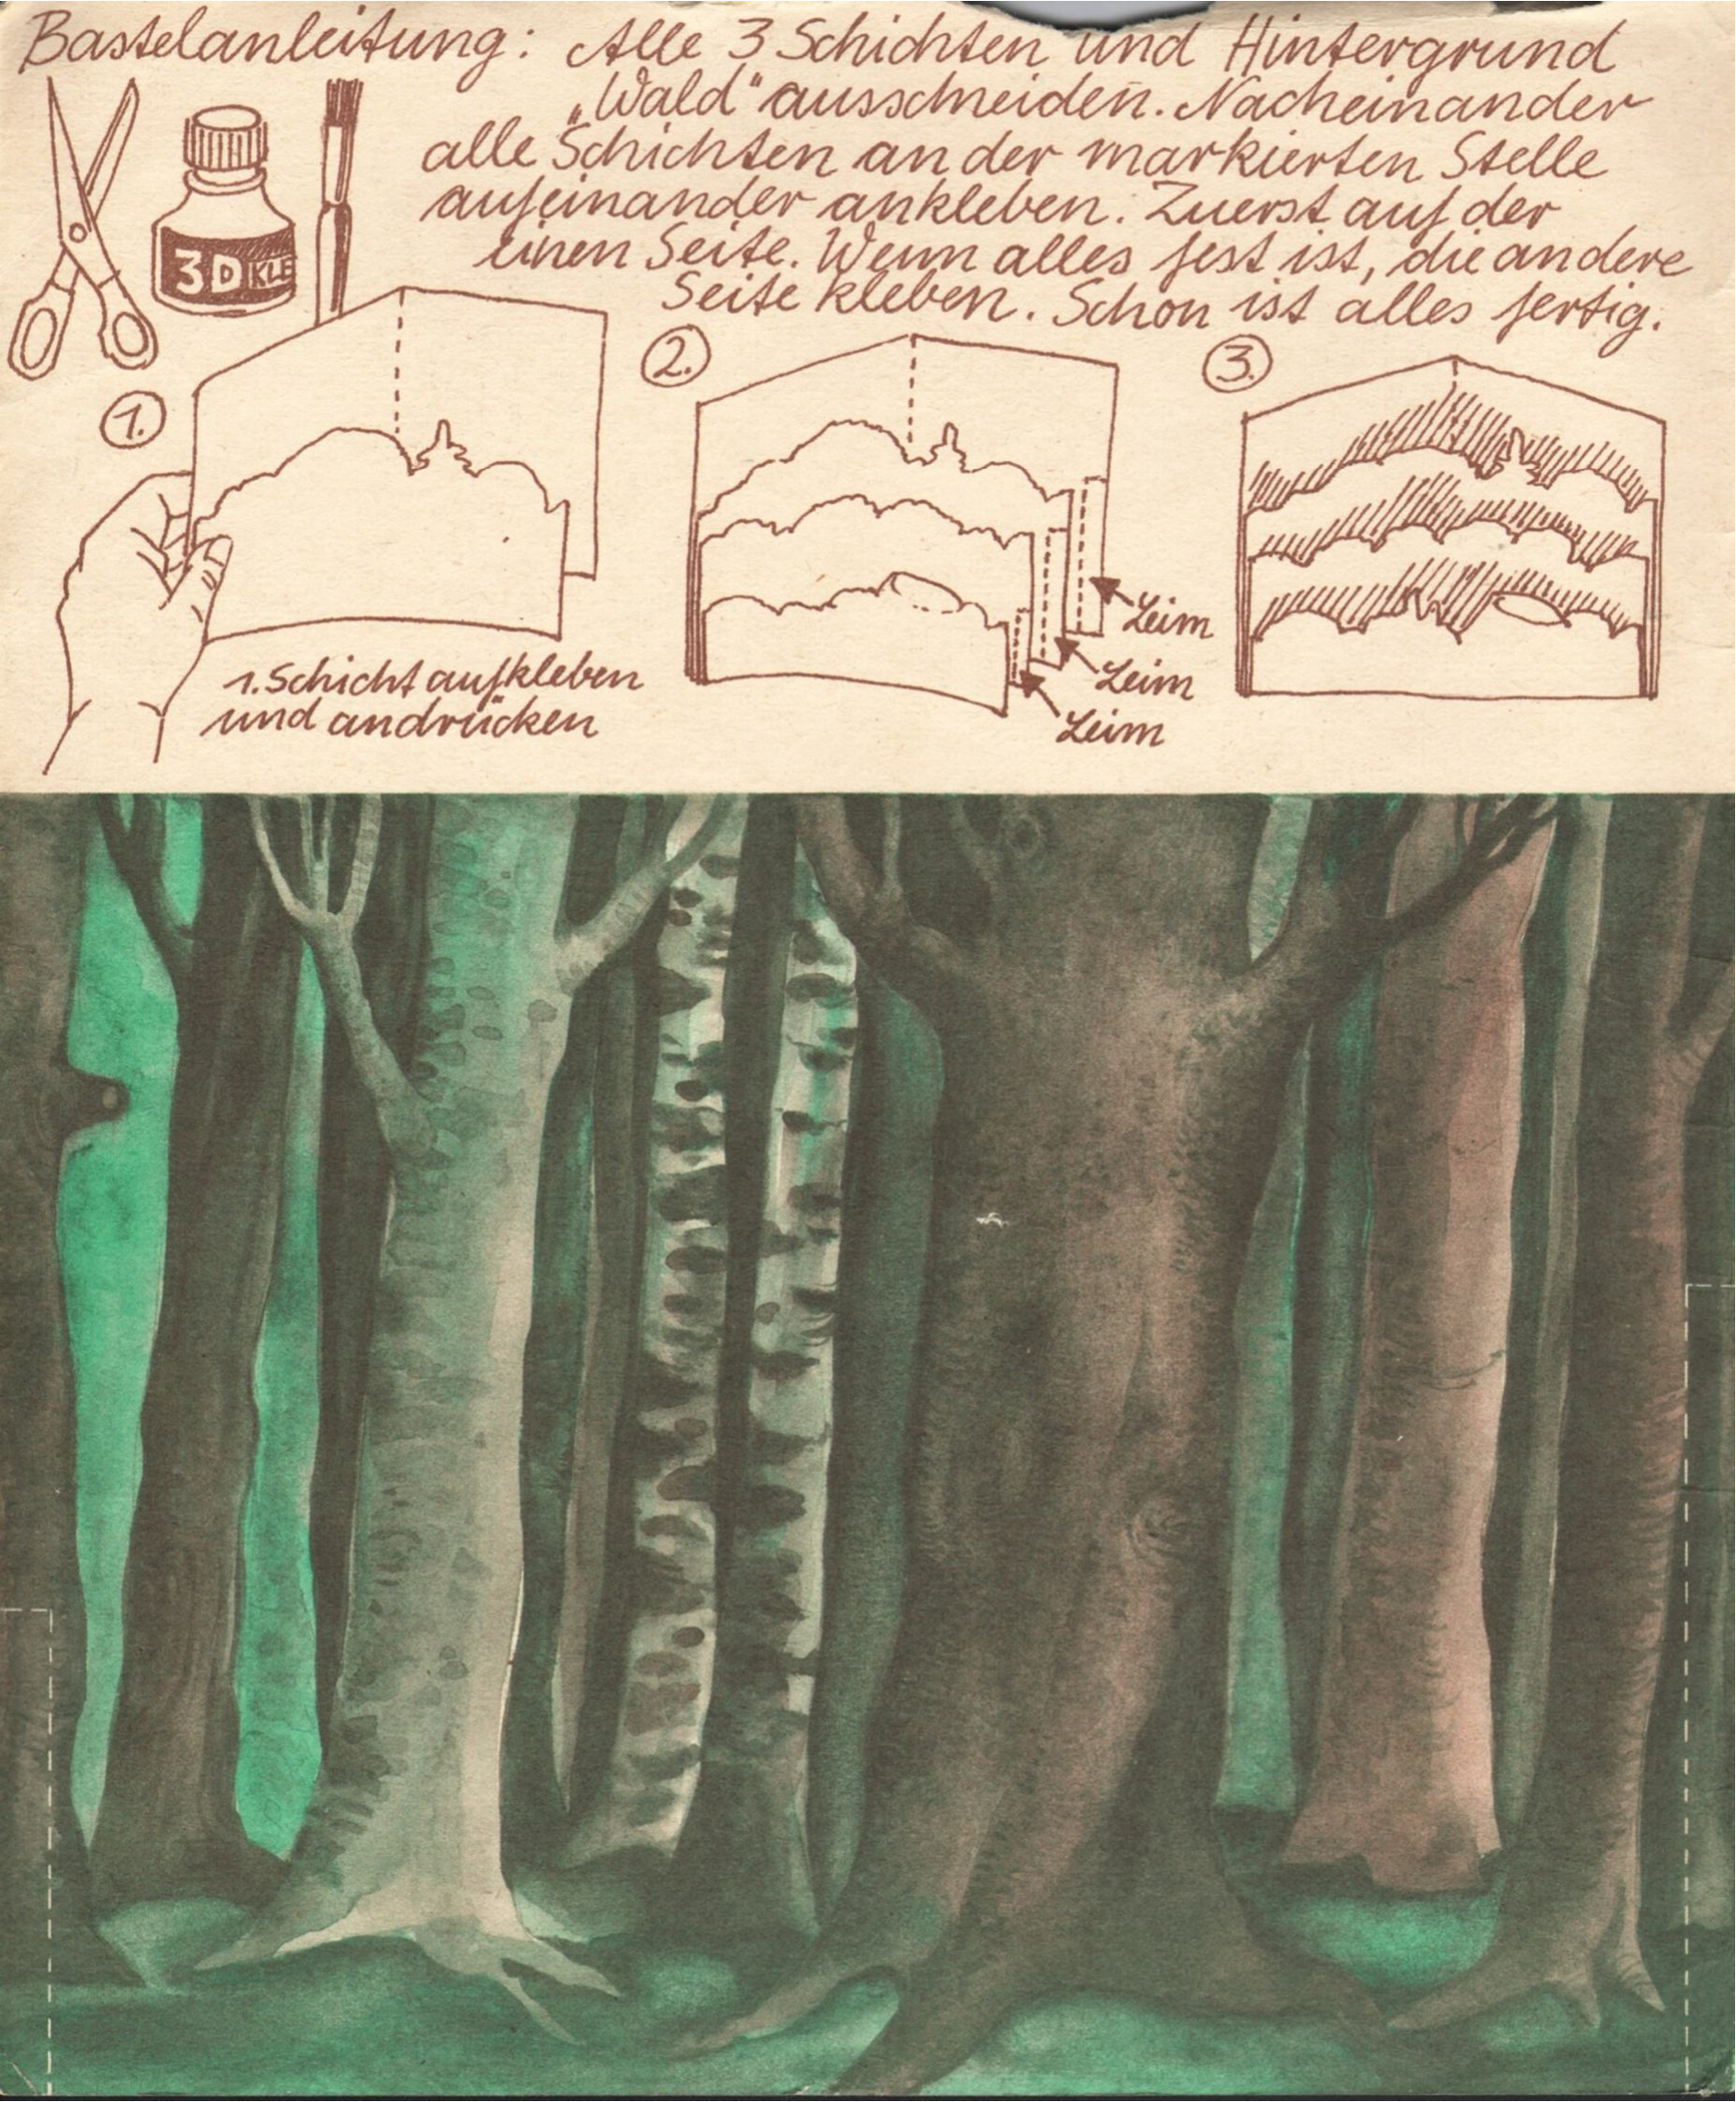 Bastelanleitung: Alle 3 Schichten und Hintergrund
„Wald" ausschneiden. Nacheinander
alle Schichten an der markierten Stelle
aufeinander ankleben. Zuerst auf der
einen Seite. Wenn alles fest ist, die andere
Seite kleben. Schon ist alles fertig.
3D KLE
1.
2.
3.
1. Schicht aufkleben
und andrücken
Leim
Leim
Leim